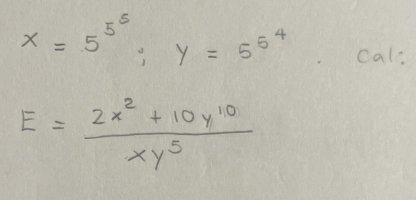 x = 5^{5^5} ; y = 5^{5^4} . Cal:
E = \frac{2x^2 + 10y^{10}}{xy^5}